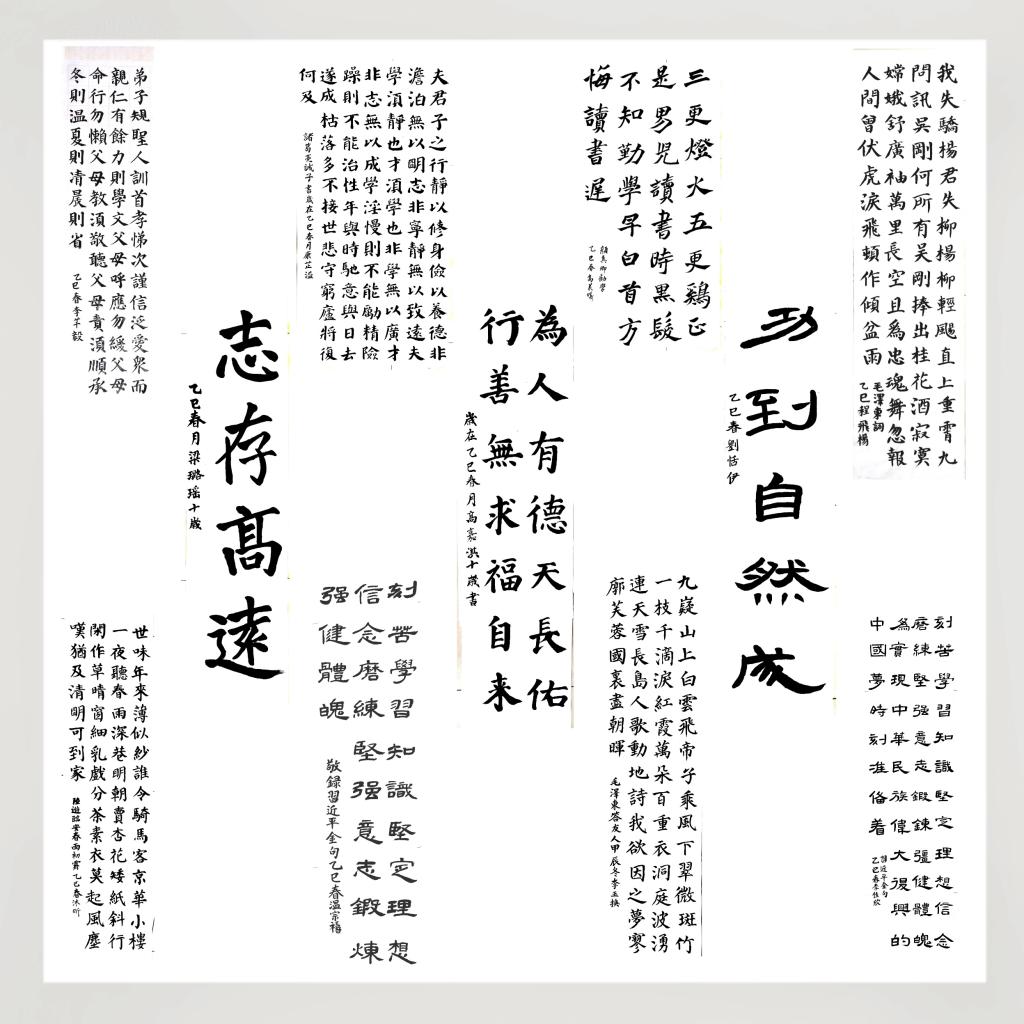 我失驕楊君失柳楊柳輕颺直上重霄九
問訊吳剛何所有吳剛捧出桂花酒寂寞
嫦娥舒廣袖萬里長空且為忠魂舞忽報
人間曾伏虎淚飛頓作傾盆雨
毛澤東詞
乙巳程飛楊
三更燈火五更鷄正
是男兒讀書時黑髮
不知勤學早白首方
悔讀書遲
顏真卿勸學
乙巳春
夫君子之行靜以修身儉以養德非
澹泊無以明志非寧靜無以致遠夫
學須靜也才須學也非學無以廣才
非志無以成學淫慢則不能勵精險
躁則不能治性年與時馳意與日去
遂成枯落多不接世悲守窮廬將復
何及
諸葛亮誡子書歲在乙巳春月
弟子規聖人訓首孝悌次謹信泛愛衆而
親仁有餘力則學文父母呼應勿緩父母
命行勿懶父母教須敬聽父母責須順承
冬則温夏則凊晨則省
乙巳春李芊毅
功到自然成
乙巳春劉恬伊
為人有德天長佑
行善無求福自来
歲在乙巳春月高嘉淇十歲書
志存高遠
乙巳春月梁璐瑶十歲
刻苦學習知識堅定理想信念
磨練堅强意志鍛鍊彊健體魄
為實現中華民族偉大復興的
中國夢時刻准俻着
習近平金句
九嶷山上白雲飛帝子乘風下翠微斑竹
一枝千滴淚紅霞萬朵百重衣洞庭波湧
連天雪長島人歌動地詩我欲因之夢寥
廓芙蓉國裏盡朝暉
毛澤東答友人甲辰冬李玉换
刻苦學習知識堅定理想
信念磨練堅强意志鍛煉
强健體魄
敬録習近平金句乙巳春温宗禧
世味年來薄似紗誰令騎馬客京華小樓
一夜聽春雨深巷明朝賣杏花矮紙斜行
閑作草晴窗細乳戲分茶素衣莫起風塵
嘆猶及清明可到家
陸遊臨安春雨初霽乙巳春沐昕